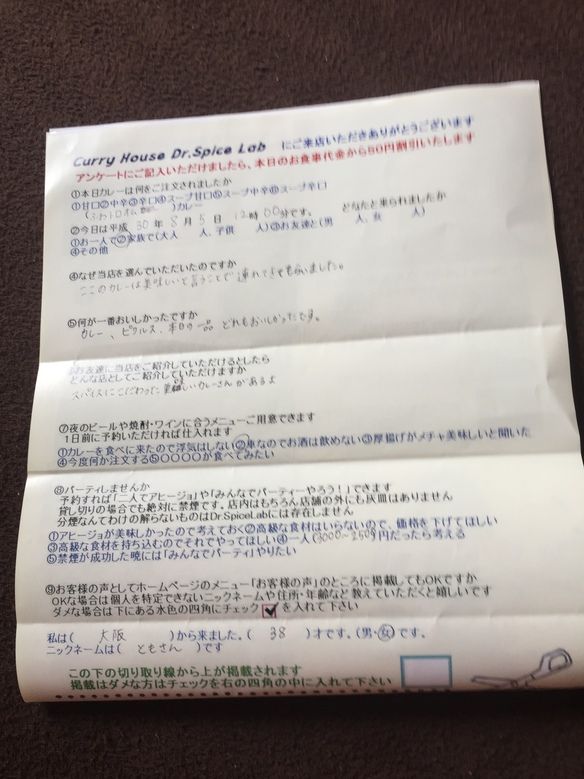 Curry House Dr.Spice Lab にご来店いただきありがとうございます
アンケートにご記入いただけましたら、本日のお食事代金から50円割引いたします
①本日カレーは何をご注文されましたか
①甘口②中辛③辛口④スープ甘口⑤スープ中辛⑥スープ辛口
( )カレー
②今日は平成 30 年 8 月 5 日 12時 00分です。 どなたと来られましたか
①お一人で②家族で(大人 人、子供 人)③お友達と(男 人、女 人)
④その他
④なぜ当店を選んでいただいたのですか
ここのカレーは美味しいと言うことで連れてきてもらいました。
⑤何が一番おいしかったですか
カレー、ピクルス、本日の一品 どれもおいしかったです。
お友達に当店をご紹介していただけるとしたら
どんな店としてご紹介していただけますか
スパイスにこだわった美味しいカレーさんがあるよ
⑦夜のビールや焼酎・ワインに合うメニューご用意できます
1日前に予約いただければ仕入れます
①カレーを食べに来たので浮気はしない②車なのでお酒は飲めない③厚揚げがメチャ美味しいと聞いた
④今度何か注文する⑤○○○○が食べてみたい
⑧パーティしませんか
予約すれば「二人でアヒージョ」や「みんなでパーティーやろう!」できます
貸し切りの場合でも絶対に禁煙です。店内はもちろん店舗の外にも灰皿はありません
分煙なんてわけの解らないものはDr.SpiceLabには存在しません
①アヒージョが美味しかったので考えておく②高級な食材はいらないので、価格を下げてほしい
③高級な食材を持ち込むのでそれでやってほしい④一人(3000~2500)円だったら考える
⑤禁煙が成功した暁には「みんなでパーティ」やりたい
⑨お客様の声としてホームページのメニュー「お客様の声」のところに掲載してもOKですか
OKな場合は個人を特定できないニックネームや住所・年齢など教えていただくと嬉しいです
ダメな場合は下にある水色の四角にチェック を入れて下さい
私は( 大阪 )から来ました。( 38 )才です。(男・女)です。
ニックネームは( ともさん )です
この下の切り取り線から上が掲載されます
掲載はダメな方はチェックを右の四角の中に入れて下さい